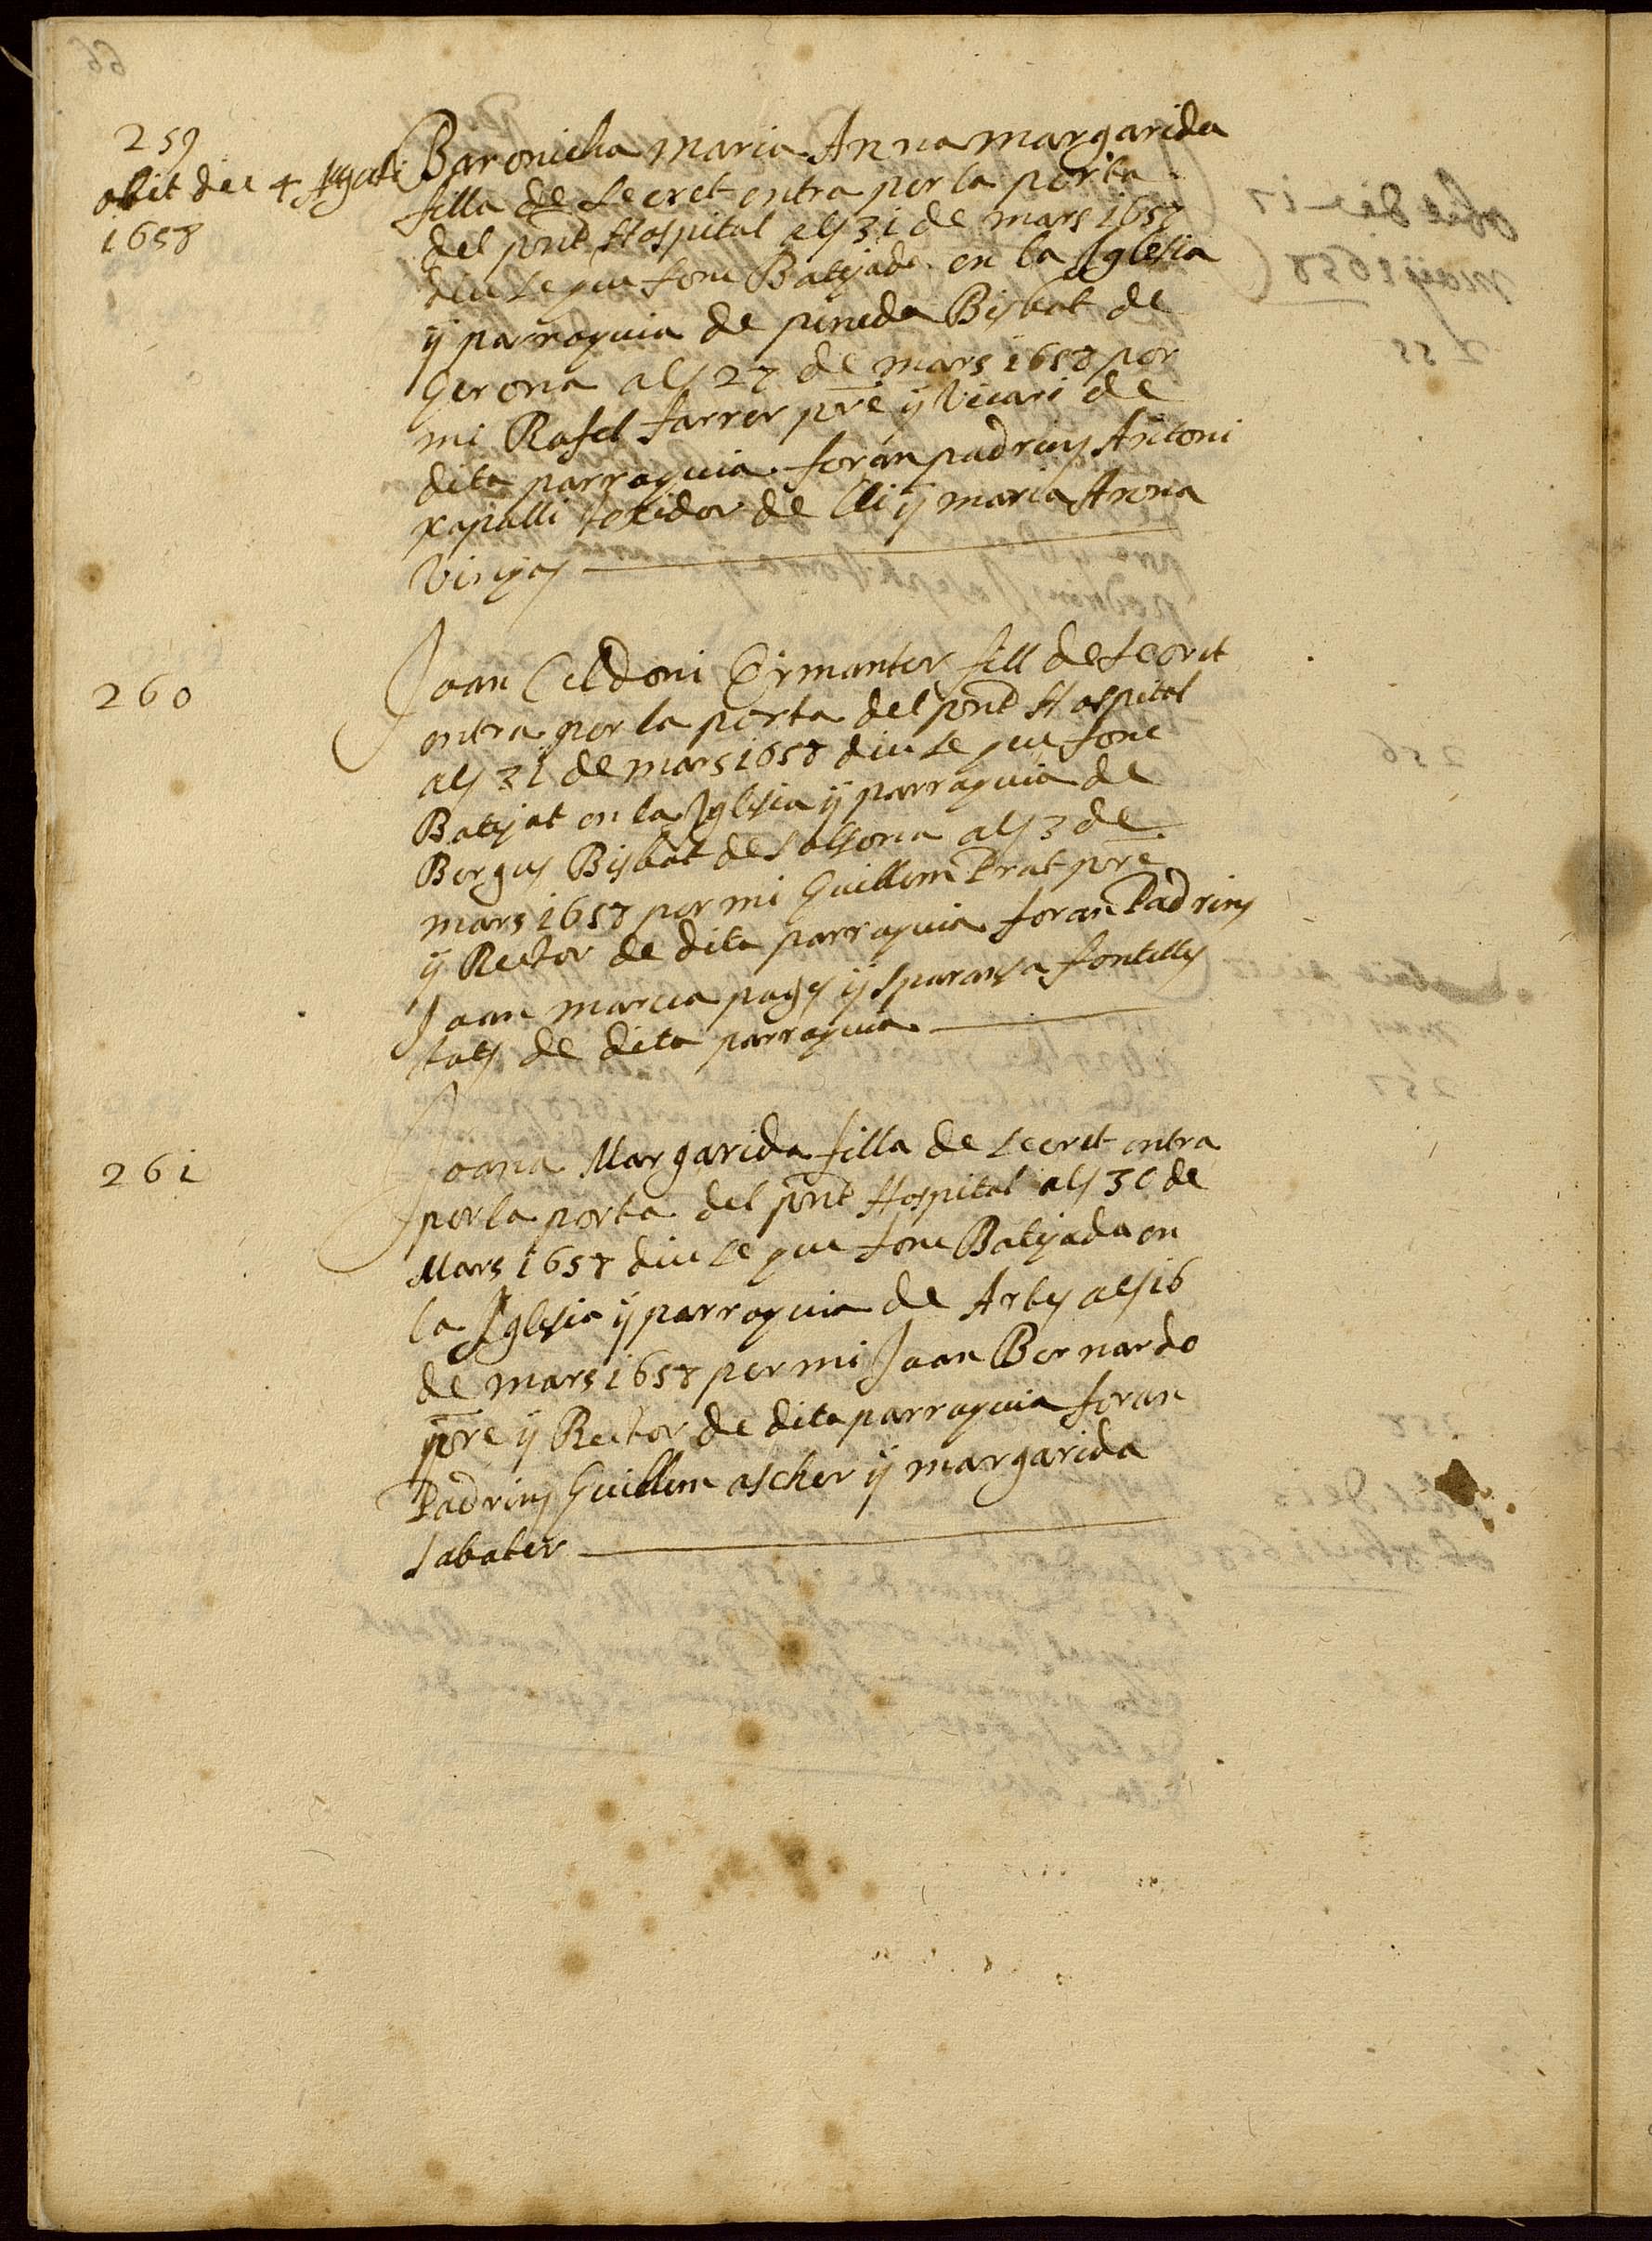 259
obit die 4 Agusti
1658
Baronicha Maria Anna Margarida
filla de secret entra per la porta
del pnt Hospital als 31 de mars 1658
diu se que fonc Batejade en la Iglesia
ÿ parroquia de pineda Bisbat de
Gerona als 27 de mars 1658 per
mi Rafel Farrer pre ÿ Vicari de
dita parroquia. foran padrins Antoni
xapulli texidor de lli ÿ maria Anna
Vinyas
260
Joan Celdoni Ermenter fill de secret
entra per la porta del pnt Hospital
als 31 de mars 1658 diu se que fonc
Batejat en la Iglesia ÿ parroquia de
Bergus Bisbat de Solsona als 3 de
mars 1658 per mi Guillem Prat pre
ÿ Rector de dita parroquia foran Padrins
Joan marca pages ÿ Sparansa fontelles
tots de dita parroquia
261
Joana Margarida filla de secret entra
per la porta del pnt Hospital als 30 de
Mars 1658 diu se que fonc Batejada en
la Iglesia ÿ parroquia de Arles als 16
de mars 1658 per mi Joan Bernardo
pre ÿ Rector de dita parroquia foran
Padrins Guillem ascher ÿ margarida
sabater